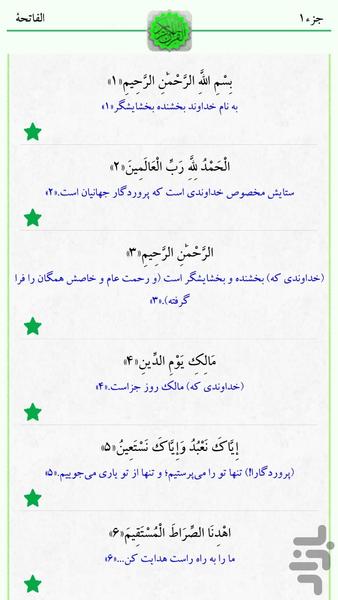 جزء۱
الفاتحة
بِسْمِ اللَّهِ الرَّحْمَٰنِ الرَّحِيمِ«۱»
به نام خداوند بخشنده بخشایشگر«۱»
الْحَمْدُ لِلَّهِ رَبِّ الْعَالَمِينَ«۲»
ستایش مخصوص خداوندی است که پروردگار جهانیان است.«۲»
الرَّحْمَٰنِ الرَّحِيمِ«۳»
(خداوندی که) بخشنده و بخشایشگر است (و رحمت عام و خاصش همگان را فرا
گرفته).«۳»
مَالِكِ يَوْمِ الدِّينِ«۴»
(خداوندی که) مالک روز جزاست.«۴»
إِيَّاكَ نَعْبُدُ وَإِيَّاكَ نَسْتَعِينُ«۵»
(پروردگارا!) تنها تو را می‌پرستیم؛ و تنها از تو یاری می‌جوییم.«۵»
اهْدِنَا الصِّرَاطَ الْمُسْتَقِيمَ«۶»
ما را به راه راست هدایت کن...«۶»
بازار